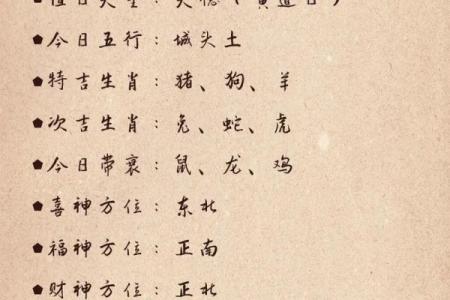 值日天星：天德（黄道日）
⬟今日五行：城头土
⬟特吉生肖：猪、狗、羊
⬟次吉生肖：兔、蛇、虎
⬟今日带衰：鼠、龙、鸡
⬟喜神方位：东北
⬟福神方位：正南
⬟财神方位：正北